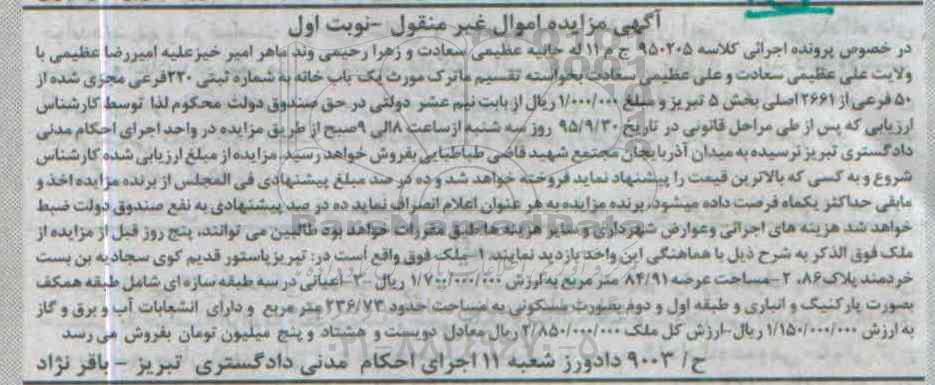 آگهی مزایده اموال غیر منقول -نوبت اول
در خصوص پرونده اجرائی کلاسه ۹۵۰۲۰۵ ج م ۱۱ له حانیه عظیمی سعادت و زهرا رحیمی وند ماهر امیر خیز علیه امیررضا عظیمی با
ولایت علی عظیمی سعادت و علی عظیمی سعادت بخواسته تقسیم ماترک مورث یک باب خانه به شماره ثبتی ۲۲۰فرعی مجزی شده از
۵۰ فرعی از ۲۶۶۱ اصلی بخش ۵ تبریز و مبلغ ۱/۰۰۰/۰۰۰ ریال از بابت نیم عشر دولتی در حق صندوق دولت محکوم لذا توسط کارشناس
ارزیابی که پس از طی مراحل قانونی در تاریخ ۹۵/۹/۳۰ روز سه شنبه از ساعت ۸الی ۹صبح از طریق مزایده در واحد اجرای احکام مدنی
دادگستری تبریز نرسیده به میدان آذربایجان مجتمع شهید قاضی طباطبایی بفروش خواهد رسید. مزایده از مبلغ ارزیابی شده کارشناس
شروع و به کسی که بالاترین قیمت را پیشنهاد نماید فروخته خواهد شد و ده درصد مبلغ پیشنهادی فی المجلس از برنده مزایده اخذ و
مابقی حداکثر یکماه فرصت داده میشود. برنده مزایده به هر عنوان اعلام انصراف نماید ده در صد پیشنهادی به نفع صندوق دولت ضبط
خواهد شد هزینه های اجرائی وعوارض شهرداری و سایر هزینه ها طبق مقررات خواهد بود طالبین می توانند، پنج روز قبل از مزایده از
ملک فوق الذکر به شرح ذیل با هماهنگی این واحد بازدید نمایند. ۱-ملک فوق واقع است در: تبریز پاستور قدیم کوی سجادیه بن بست
خردمند پلاک ۸۶، ۲-مساحت عرصه ۸۴/۹۱ متر مربع به ارزش ۱/۷۰۰/۰۰۰/۰۰۰ ریال -۳-اعیانی در سه طبقه سازه ای شامل طبقه همکف
بصورت پارکینگ و انباری و طبقه اول و دوم بصورت مسکونی به مساحت حدود ۲۳۶/۷۳ متر مربع و دارای انشعابات آب و برق و گاز
به ارزش ۱/۱۵۰/۰۰۰/۰۰۰ ریال-ارزش کل ملک ۲/۸۵۰/۰۰۰/۰۰۰ ریال معادل دویست و هشتاد و پنج میلیون تومان بفروش می رسد
ح/ ۹۰۰۳ دادورز شعبه ۱۱ اجرای احکام مدنی دادگستری تبریز - باقر نژاد